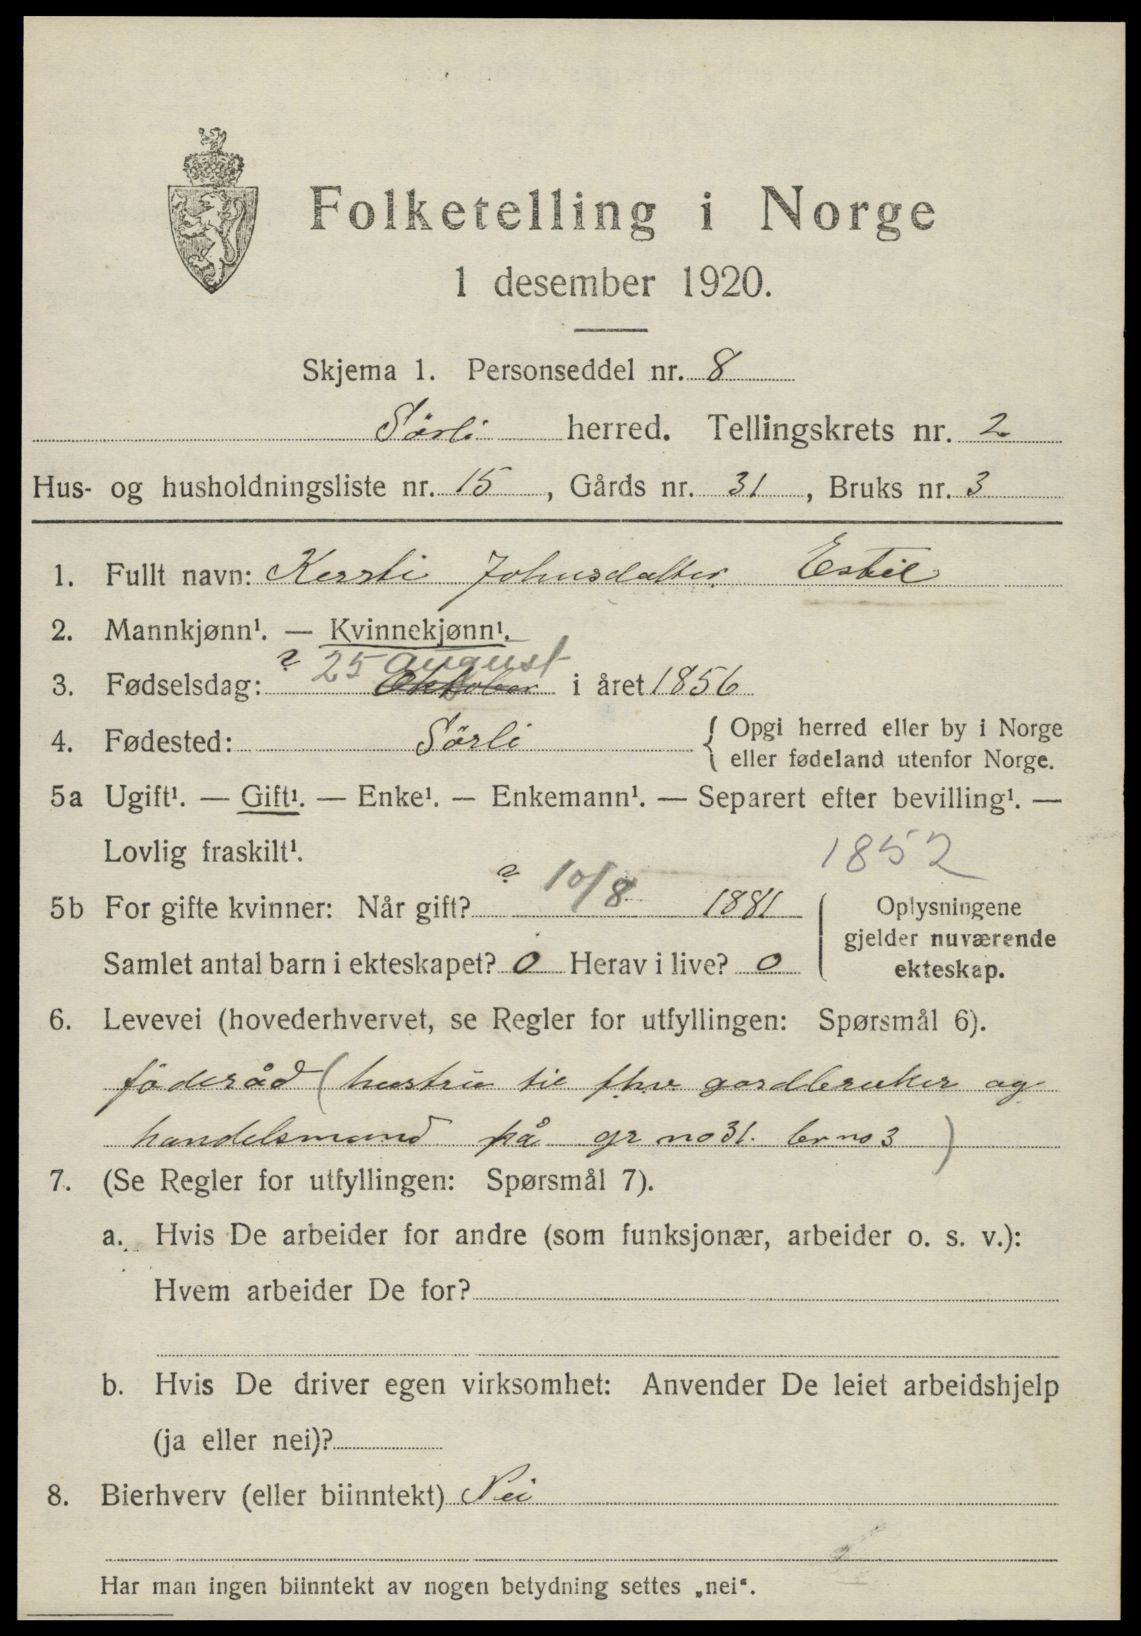 Folketelling i Norge
1 desember 1920.
Skjema 1. Personseddel nr. 8
Sörli herred. Tellingskrets nr. 2
Hus- og husholdningsliste nr. 15, Gårds nr. 31, Bruks nr. 3
1. Fullt navn: Kersti Johnsdatter Estil
2. Mannkjønn¹. — Kvinnekjønn¹.
? 25 august
3. Fødselsdag: Oktober i året 1856
4. Fødested: Sörli { Opgi herred eller by i Norge
eller fødeland utenfor Norge.
5a Ugift¹. — Gift¹. — Enke¹. — Enkemann¹. — Separert efter bevilling¹. —
Lovlig fraskilt¹.
1852
5b For gifte kvinner: Når gift? ? 10/8 1881
Samlet antal barn i ekteskapet? 0 Herav i live? 0
Oplysningene
gjelder nuværende
ekteskap.
6. Levevei (hovederhvervet, se Regler for utfyllingen: Spørsmål 6).
föderåd (hustru til fhv gardbruker og
handelsmand på gr no 31. br no 3)
7. (Se Regler for utfyllingen: Spørsmål 7).
a. Hvis De arbeider for andre (som funksjonær, arbeider o. s. v.):
Hvem arbeider De for?
b. Hvis De driver egen virksomhet: Anvender De leiet arbeidshjelp
(ja eller nei)?
8. Bierhverv (eller biinntekt) Nei
Har man ingen biinntekt av nogen betydning settes „nei“.